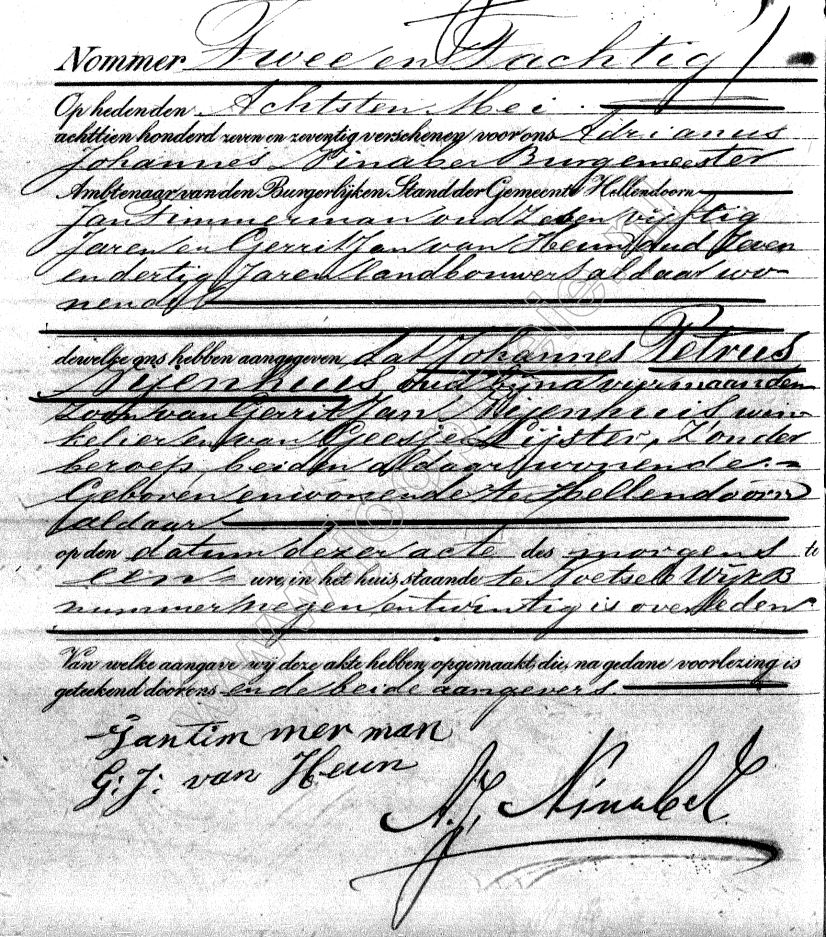 Nommer Twee en Tachtig
Op heden den Achtsten Mei
achttien honderd zeven en zeventig verschenen voor ons Adrianus
Johannes Ninaber Burgemeester
Ambtenaar van den Burgerlijken Stand der Gemeente Hellendoorn
Jan Timmerman oud zes en vijftig
jaren en Gerrit Jan van Heun oud zeven
en dertig jaren landbouwers aldaar wo-
nende
dewelke ons hebben aangegeven dat Johannes Petrus
Nijenhuis, oud bijna vier maanden
zoon van Gerrit Jan Nijenhuis win-
kelier en van Geesje Lijster, zonder
beroep, beiden aldaar wonende.-
Geboren en wonende te Hellendoorn
aldaar
op den datum dezer acte des morgens te
een ure, in het huis, staande te Noetsele Wijk B
nummer negen en twintig is overleden
Van welke aangave wij deze akte hebben opgemaakt, die, na gedane voorlezing is
geteekend door ons en de beide aangevers
Jan timmerman
G: J: van Heun
A.J. Ninaber